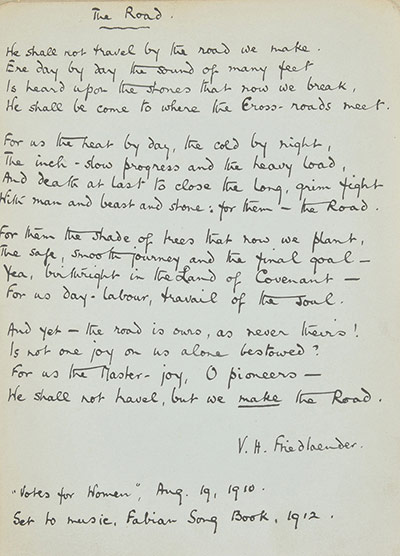 The Road.
We shall not travel by the road we make.
Ere day by day the sound of many feet
Is heard upon the stones that now we break,
We shall be come to where the Cross-roads meet.
For us the heat by day, the cold by night,
The inch-slow progress and the heavy load,
And death at last to close the long, grim fight
With man and beast and stone: for them - the Road.
For them the shade of trees that now we plant,
The safe, smooth journey and the final goal -
Yea, birthright in the Land of Covenant -
For us day-labour, travail of the soul.
And yet - the road is ours, as never theirs!
Is not one joy on us alone bestowed?
For us the Master-joy, O pioneers -
We shall not travel, but we make the Road.
V. H. Friedlaender.
"Votes for Women", Aug. 19, 1910.
Set to music, Fabian Song Book, 1912.